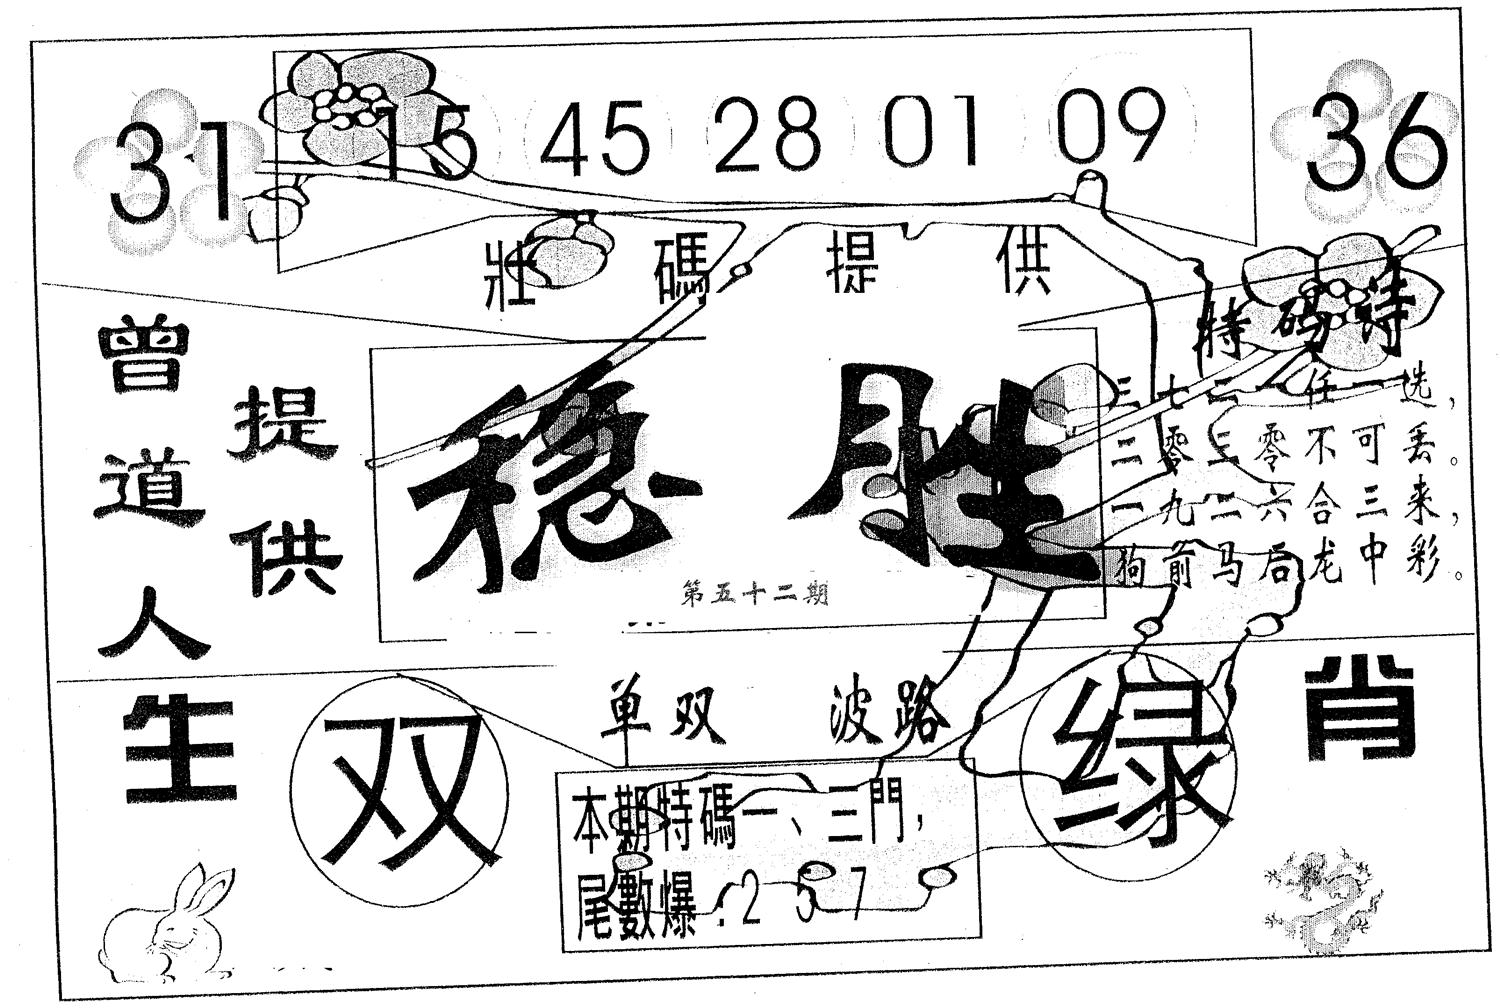 31 15 45 28 01 09 36
壯碼提供
曾道人
提供
稳胜
第五十二期
特码诗
三七二一任一选,
二零三零不可丢。
一九二六合三来,
狗前马后龙中彩。
生肖
双
单双 波路
绿
本期特碼一、三門,
尾數爆:2 5 7